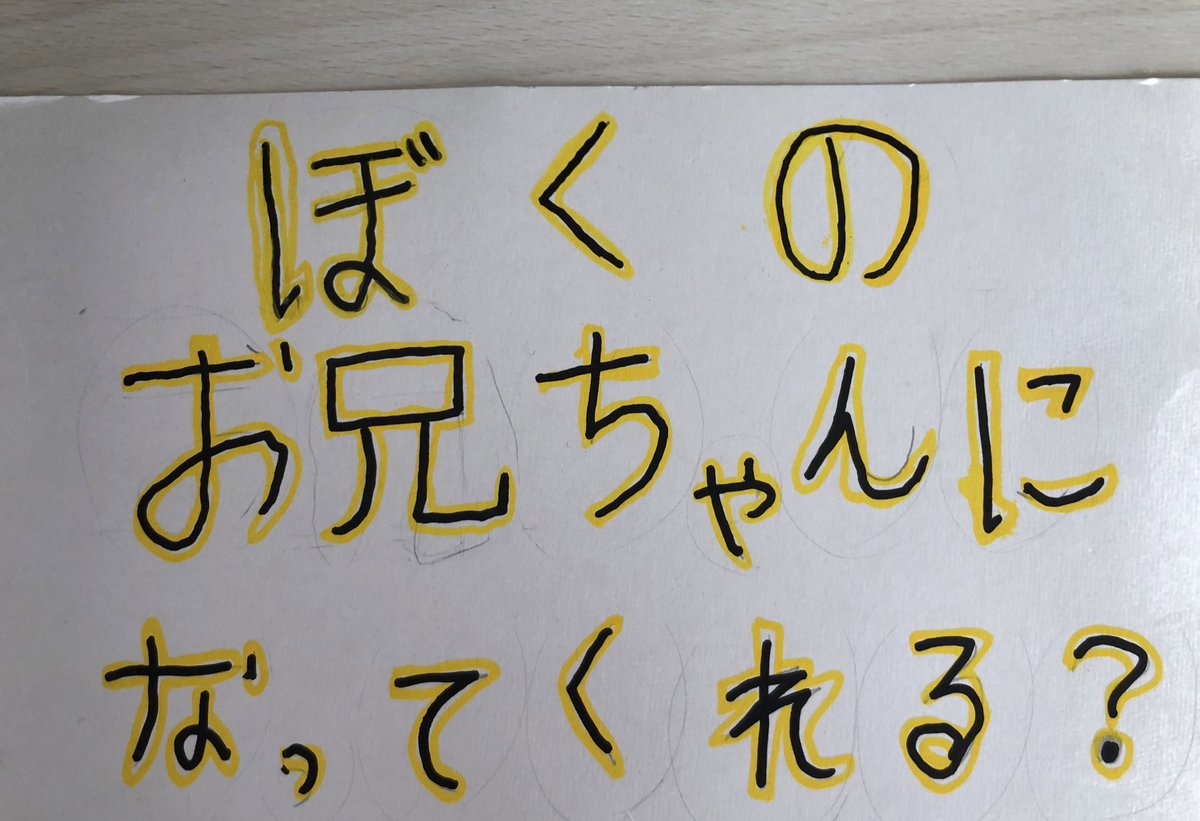 ぼくの
お兄ちゃんに
なってくれる?